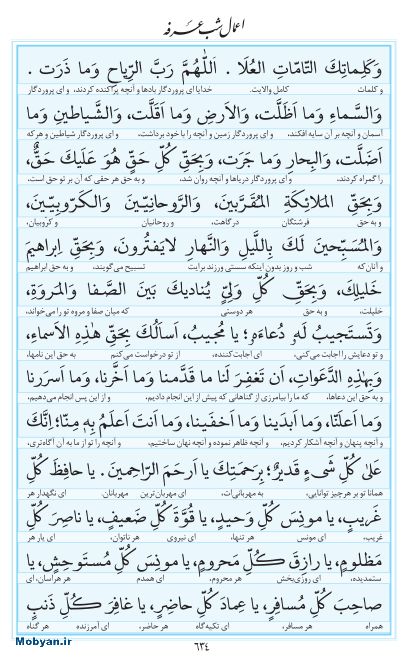 اعمال شب عرفه
وَكَلِماتِكَ التّامّاتِ العُلَا . اَللّٰهُمَّ رَبَّ الرِّياحِ وَما ذَرَت .
و کلمات کامل والایت. خدایا ای پروردگار بادها و آنچه پراکنده کردند، و ای پروردگار
وَالسَّماءِ وَما اَظَلَّت، وَالاَرضِ وَما اَقَلَّت، وَالشَّياطينِ وَما
آسمان و آنچه بر آن سایه افکند، و ای پروردگار زمین و آنچه را با خود برداشت، و ای پروردگار شیاطین و هر که
اَضَلَّت، وَالبِحارِ وَما جَرَت، وَبِحَقِّ كُلِّ حَقٍّ هُوَ عَلَيكَ حَقٌّ،
را گمراه کردند، و ای پروردگار دریاها و آنچه روان شد، و به حق هر حقی که آن بر تو حق است،
وَبِحَقِّ المَلائِكَةِ المُقَرَّبينَ، وَالرَّوحانِيّينَ وَالكَرّوبِيّينَ،
و به حق فرشتگان درگاهت، و روحانیان و کروبیان،
وَالمُسَبِّحينَ لَكَ بِاللَّيلِ وَالنَّهارِ لايَفتُرونَ، وَبِحَقِّ اِبراهيمَ
و آنان که شب و روز بدون اینکه سستی ورزند برایت تسبیح می‌گویند، و به حق ابراهیم
خَليلِكَ، وَبِحَقِّ كُلِّ وَلِيٍّ يُناديكَ بَينَ الصَّفا وَالمَروَةِ،
خلیلت، و به حق هر دوستی که میان صفا و مروه تو را می‌خواند،
وَتَستَجيبُ لَهُ دُعاءَهُ؛ يا مُجيبُ، اَساَلُكَ بِحَقِّ هٰذِهِ الاَسماءِ،
و تو دعایش را اجابت می‌کنی، ای اجابت‌کننده، از تو درخواست می‌کنم به حق این نامها،
وَبِهٰذِهِ الدَّعَواتِ، اَن تَغفِرَ لَنا ما قَدَّمنا وَما اَخَّرنا، وَما اَسرَرنا
و به حق این دعاها، که ما را بیامرزی از گناهانی که پیش از این انجام دادیم، و از این پس انجام می‌دهیم،
وَما اَعلَنّا، وَما اَبدَينا وَما اَخفَينا، وَما اَنتَ اَعلَمُ بِهِ مِنّا؛ اِنَّكَ
و آنچه پنهان و آنچه آشکار کردیم، و آنچه ظاهر نموده و آنچه نهان ساختیم، و آنچه را تو از ما به آن آگاه‌تری،
عَلىٰ كُلِّ شَيءٍ قَديرٌ؛ بِرَحمَتِكَ يا اَرحَمَ الرّاحِمينَ . يا حافِظَ كُلِّ
همانا تو بر هر چیز توانایی، به مهربانی‌ات، ای مهربان‌ترین مهربانان. ای نگهدار هر
غَريبٍ، يا مونِسَ كُلِّ وَحيدٍ، يا قُوَّةَ كُلِّ ضَعيفٍ، يا ناصِرَ كُلِّ
غریب، ای مونس هر تنها، ای نیروی هر ناتوان، ای یار هر
مَظلومٍ، يا رازِقَ كُلِّ مَحرومٍ، يا مونِسَ كُلِّ مُستَوحِشٍ، يا
ستمدیده، ای روزی‌بخش هر محروم، ای همدم هر هراسان، ای
صاحِبَ كُلِّ مُسافِرٍ، يا عِمادَ كُلِّ حاضِرٍ، يا غافِرَ كُلِّ ذَنبٍ
همراه هر مسافر، ای تکیه‌گاه هر حاضر، ای آمرزنده هر گناه
٦٣٤
Mobyan.ir